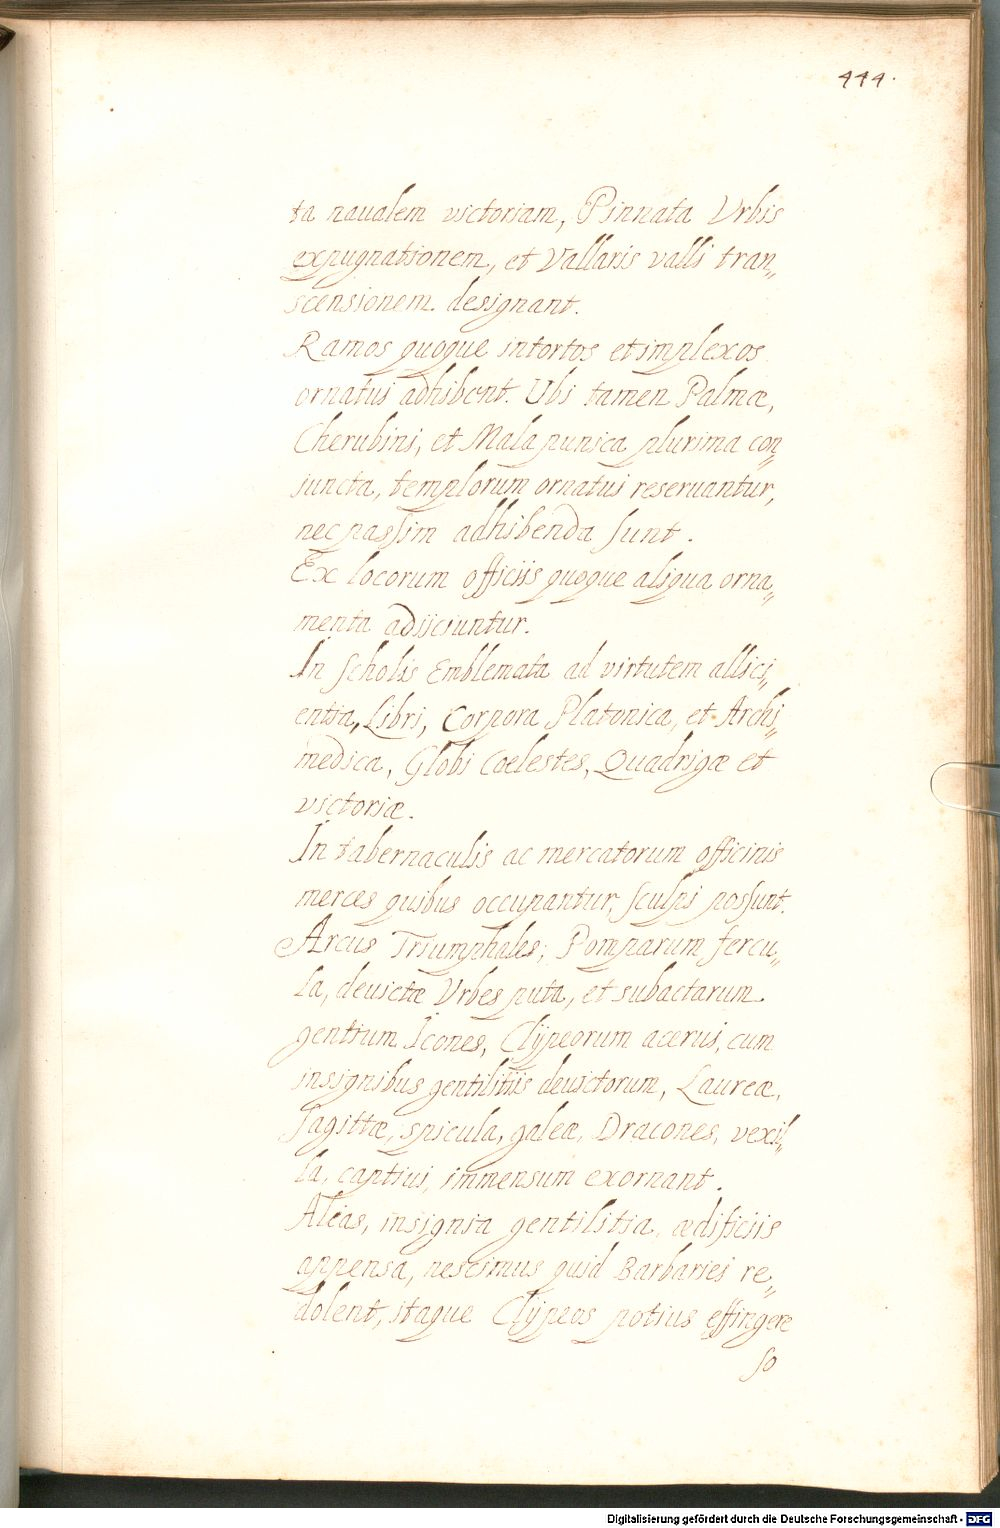 444.
ta naualem victoriam, Pinnata Vrbis
expugnationem, et Vallaris valli tran„
scensionem designant.
Ramos quoque intortos et implexos
ornatui adhibent. Ubi tamen Palmæ,
Cherubini, et Mala punica plurima con„
iuncta, templorum ornatui reseruantur,
nec passim adhibenda sunt.
Ex locorum officiis quoque aliqua orna„
menta adijciuntur.
In scholis Emblemata ad virtutem allici„
entia, Libri, Corpora Platonica, et Archi„
medica, Globi Coelestes, Quadrigæ et
victoriæ.
In tabernaculis ac mercatorum officinis
merces quibus occupantur, sculpi possunt.
Arcus Triumphales; Pomparum fercu„
la, deuictæ Vrbes puta, et subactarum
gentium Icones, Clijpeorum acerui, cum
insignibus gentilitiis deuictorum, Laureæ,
sagittæ, spicula, galeæ, Dracones, vexil„
la, captiui, immensum exornant.
Alias, insignia gentilitia, ædificiis
appensa, nescimus quid Barbariei re„
dolent, itaque Clijpeos potius effingere
so
Digitalisierung gefördert durch die Deutsche Forschungsgemeinschaft - DFG